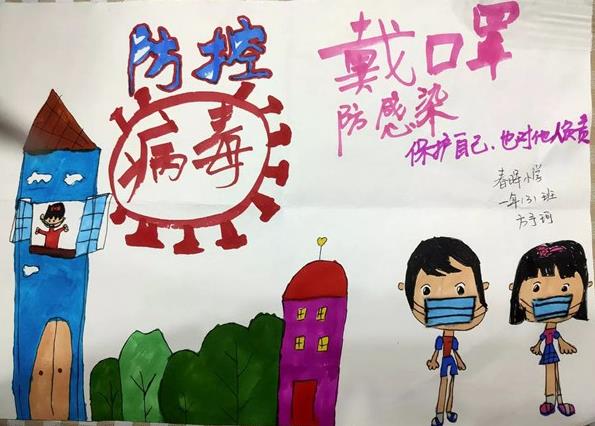 防控
病毒
戴口罩
防感染
保护自己、也对他人负责
春晖小学
一年(3)班
方予珂